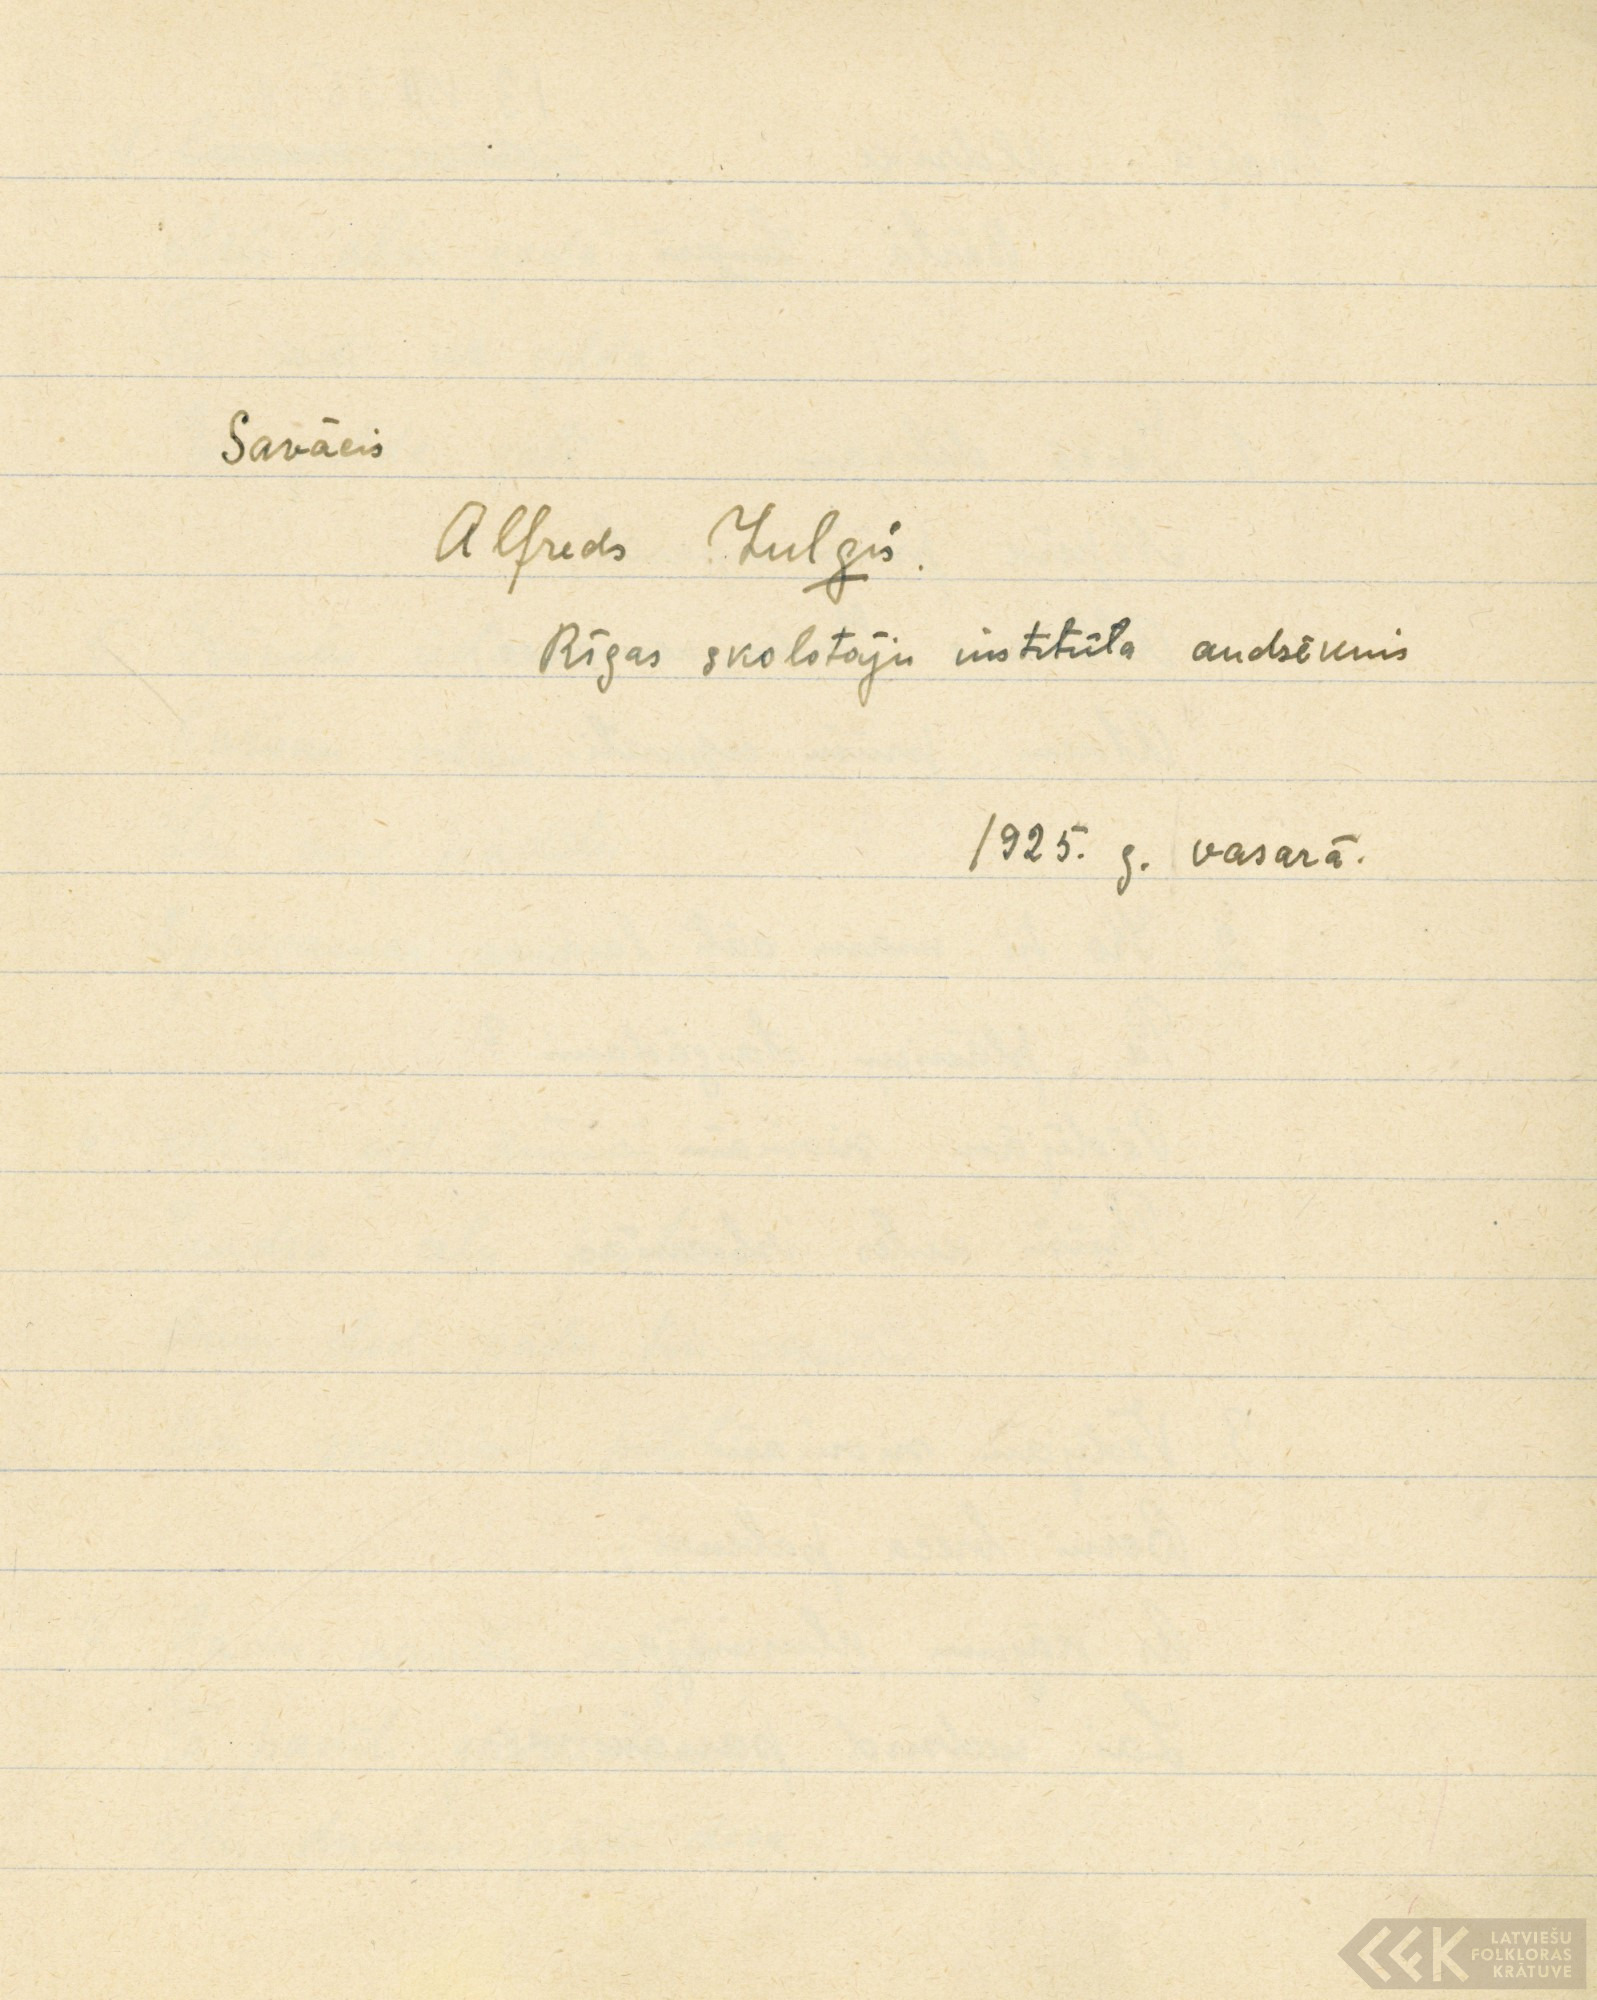 Savācis
Alfreds Zulgis.
Rīgas skolotāju institūta audzēknis
1925. g. vasarā.
LATVIEŠU
FOLKLORAS
KRĀTUVE